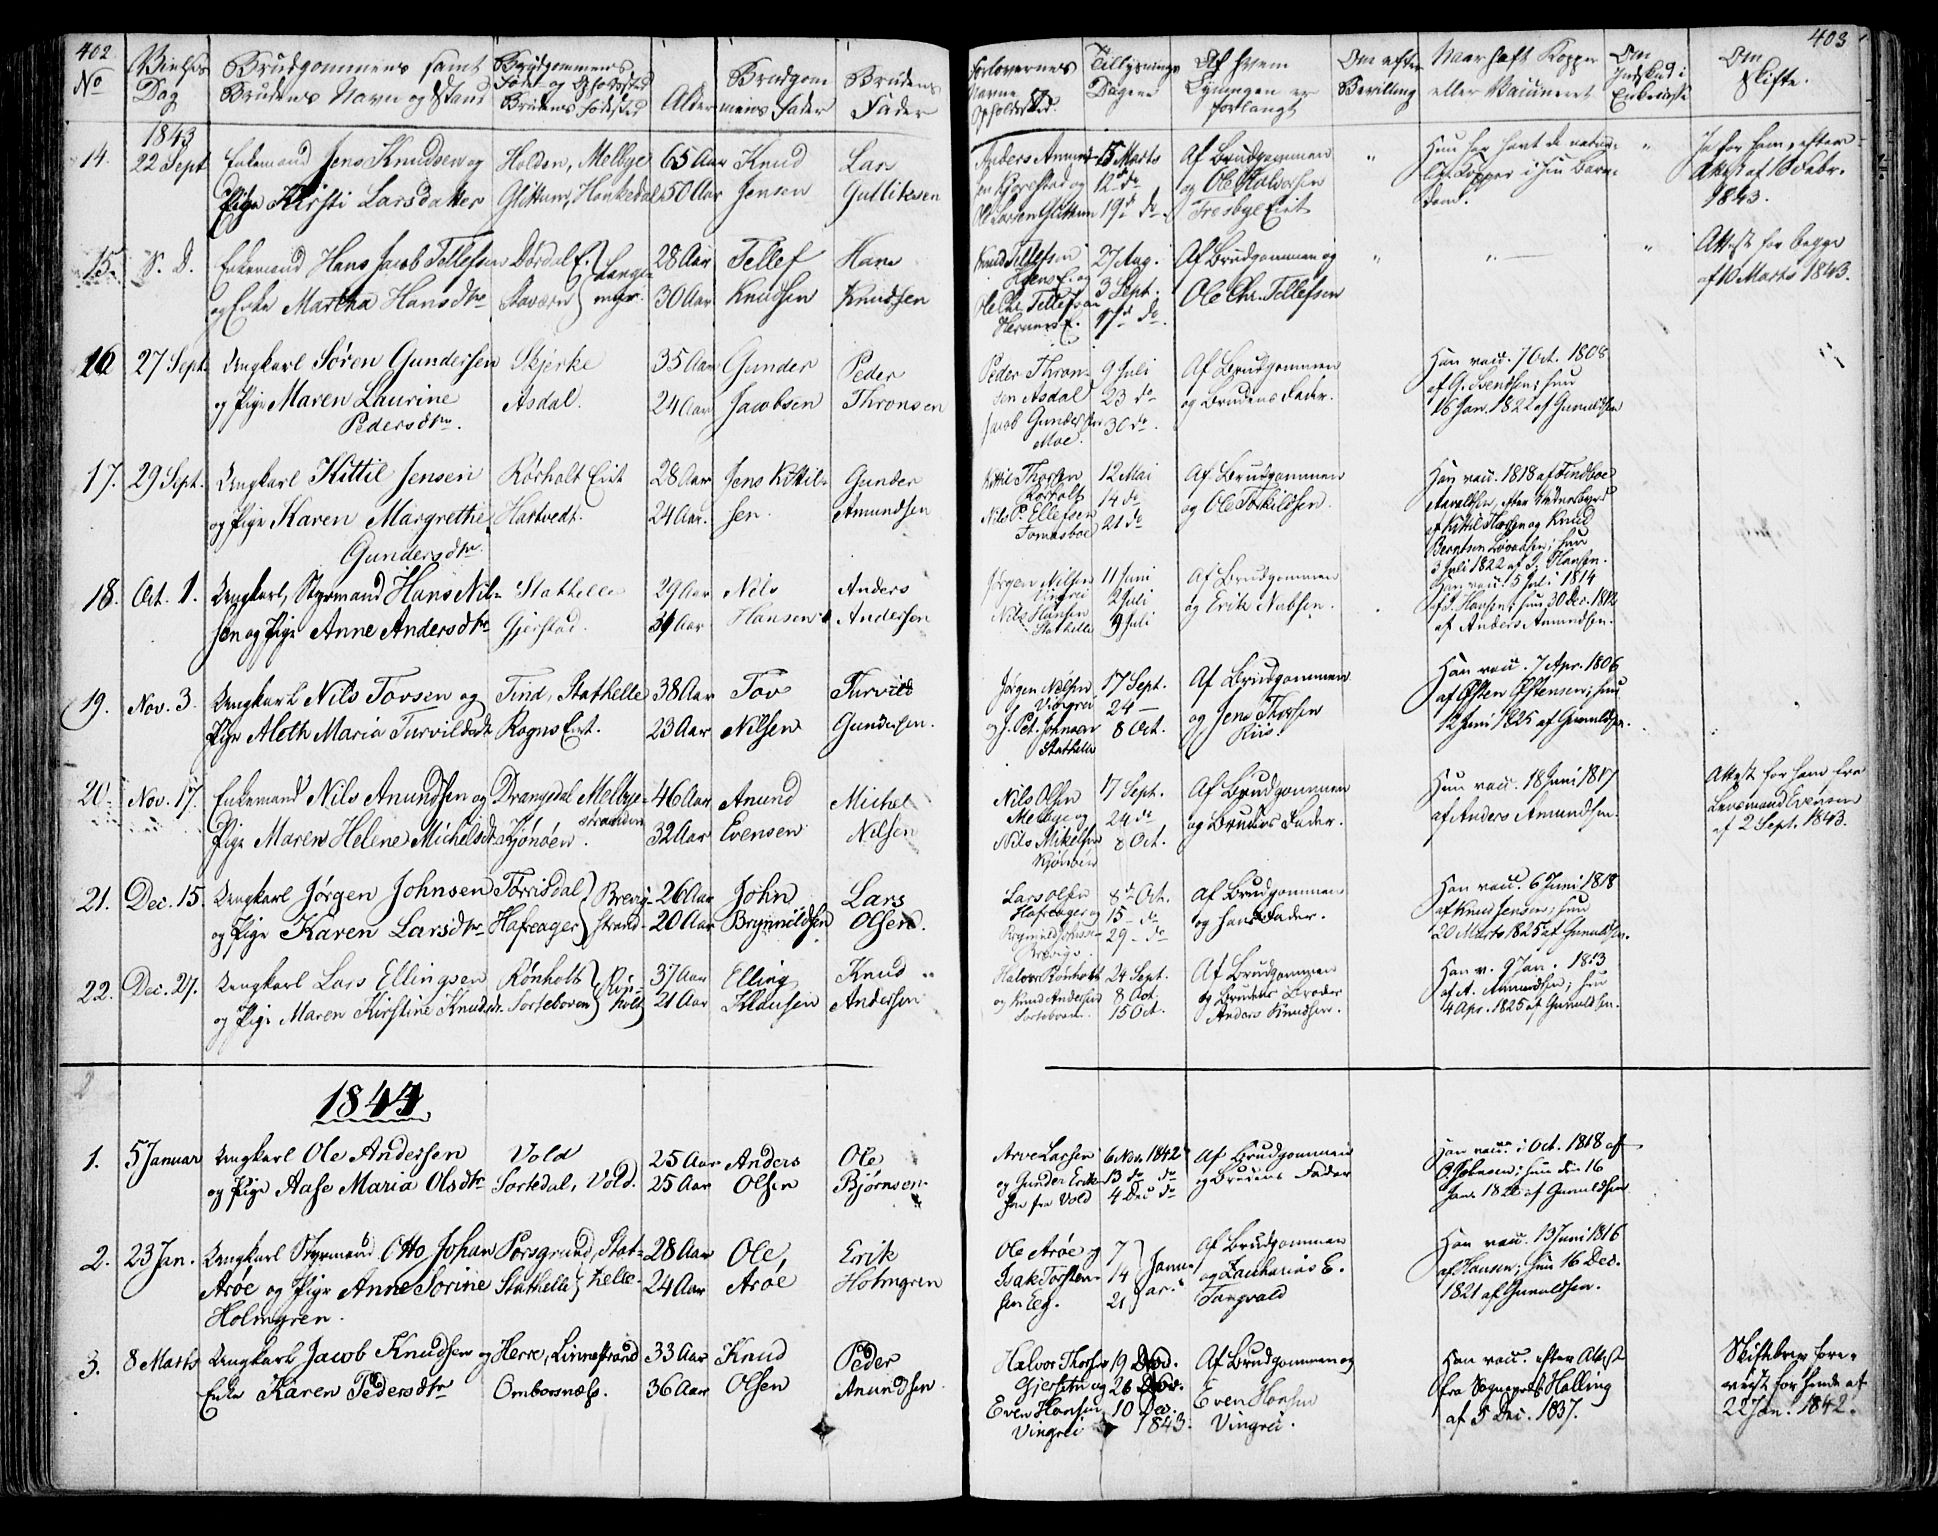 402
No
Vielses Dag
Brudgommens samt
Brudens Navn og Stand
Brudgommens
Fødes og Opholdssted
Brudens Fødested
Alder
Brudgom
mens Fader
Brudens
Fader
1843
14. 22 Sept Enkemand Jens Knudsen og Holden, Melbye 65 Aar Knud Lars
Pige Kirsti Larsdatter Glittum, Hankedal 50 Aar Jensen Gullitsen
15. S. D. Enkemand Hans Jacob Tellefsen Dørdal E. 28 Aar Tellef Hans
og Enke Martha Hansdtr Stavern 30 Aar Knudsen Knudsen
16 27 Sept. Ungkarl Søren Gundersen Skjerke 35 Aar Gunder Peder
og Pige Maren Laurine Asdal. 24 Aar Jacobsen Thronsen
Pedersdtr.
17. 29 Sept. Ungkarl Kittil Jensen Rørholt Eiet 28 Aar Jens Kittil- Gunder
og Pige Karen Margrethe Hartvedt. 24 Aar. sen. Amundsen
Gundersdtr.
18. Oct. 1. Ungkarl, Styrmand Hans Nil- Stathelle 29 Aar Nils Anders
sen og Pige Anne Andersdtr Gjerstad. Aar Hansen Andersen
19. Nov. 3. Ungkarl Nils Tovsen og Tind, Stathelle 38 Aar Tov Turvild
Pige Aleth Maria Turvildsdt Rogns Eiet. 23 Aar Nilsen Gundersen.
20. Nov. 17. Enkemand Nils Anundsen og Drangedal Melbye- 46 Aar Anund Michel
stranden
Pige Maren Helene Michelsdt. Kjønøen. 32 Aar Evensen Nilsen
21. Dec. 15. Ungkarl Jørgen Johnsen Torrisdal Brevig- 26 Aar John Lars
og Pige Karen Larsdtr Hafreager strand 20 Aar Brynnildsen Olsen.
22. Dec. 27. Ungkarl Lars Ellingsen Rønholt Røn- 37 Aar Elling Knud
og Pige Maren Kirstine Knudsdt. Torteboven holt 21 Aar Klausen Andersen
1844.
1. 5 Januar Ungkarl Ole Andersen Vold 25 Aar Anders Ole
og Pige Aase Maria Olsdtr Sortedal, Vold. 25 Aar Olsen Bjørnsen.
2. 23 Jan. Ungkarl Styrmand Otto Johan Porsgrund, Stat- 28 Aar Ole, Erik
Arøe og Pige Anne Sorine Stathelle helle. 24 Aar Arøe Holmgren
Holmgren.
3. 8 Marts Ungkarl Jacob Knudsen og Herre, Linnestrand 33 Aar Knud Peder
Enke Karen Pedersdtr Omborsnæs. 36 Aar Olsen Anundsen.
403
Forlovernes
Navne
Opholdssted.
Tillysnings
Dagene
Af hvem
Lysningen er
forlangt
Om efter
Bevilling
Om
Skifte.
15 Marts Af Brudgommen " Hun har havt de natur- " Ja for ham, efter
12 do og Ole Halvorsen Kopper i sin Barn- Attest af 16 Febr.
Ole Larsen Glittum 19 do Trosbye Eiet dom. 1843.
Knud Tellefsen 27 Aug. Af Brudgommen og " " " Attest for begge
3 Sept. Ole Chr. Tellefsen af 10 Marts 1843.
Ole Chr. Tellefsen
17 do.
Peder Thron- 9 Juli Af Brudgommen Han vacc. 7 Oct. 1808
sen Asdal 23 do og Brudens Fader. af G. Svendsen; hun
Jacob Gundersen 30 do. 16 Jan. 1822 af Gunuldsen
Moe.
Kittil Thorsen 12 Mai Af Brudgommen Han vacc. 1818 af Findboe
Rørholt 14 do og Ole Torkildsen.
Nils P. Ellefsen 21 do af Kittil Thorsen og Knud
Tomasboe Bergtsen; hun
3 Juli 1822 af J. Hansen.
Jørgen Nilsen 11 Juni Af Brudgommen Han vacc. 5 Juli 1814
Vingrei 2 Juli og Erik Nubsen. af J. Hansen; hun 30 Dec. 1812
Nils Hansen 9 Juli af Anders Amundsen.
Stathelle
Jørgen Nilsen 17 Sept. Af Brudgommen Han vacc. 7 Apr. 1806
Vingrei 24 — og Jens Thorsen af Østen Østensen; hun
og J. Pet. Johnsen 8 Oct. Riis. 12 Juni 1825 af Gunuldsen.
Stathelle
Nils Olsen 17 Sept. Af Brudgommen Hun vacc. 18 Juni 1817 Attest for ham fra
Melbye og 24 do og Brudens Fader. af Anders Amundsen. Lensmand Evensen
Nils Mikelsen 8 Oct. af 2 Sept. 1843.
Kjønøen
Lars Olsen 8de Oct. Af Brudgommen Han vacc. 6 Juni 1818
Hafreager og 15 — do og hans Fader. af Knud Jensen; hun
29 — do 20 Marts 1825 af Gunuldsen.
Halvor Rønholt 24 Sept. Af Brudgommen Han v. 9 Jan. 1813
og Knud Andersen 8 Oct. og Brudens Broder af A. Amundsen; hun
15 Oct. Anders Knudsen. 4 Apr. 1825 af Gunuldsen.
Arve Larsen 6 Nov. 1842 Af Brudgommen Han vacc. i Oct. 1818 af
og Gunder Erik- 13 do do og Brudens Fader hun den 16
sen fra Vold 4 Dec do Jan. 1822 af Gunuldsen
Ole Arøe og 7 Af Brudgommen Han vacc. 13 Juni 1816
Isak Torsten- 14 Janu- og Zacharias E. af Hansen; hun 16 Dec.
sen Eeg. 21 ar. Tangvald 1821 af Gunuldsen.
Halvor Thorsen 19 Nov. Af Brudgommen og Han vacc. efter Attest Skiftebrev fore-
Gjersetn og 26 Nov. Even Hansen fra Sognepræst Halling viist for hende af
Even Hansen 10 Dec. Vingrei. af 5 Dec. 1837. 22 Jan. 1842.
Vingrei 1843.